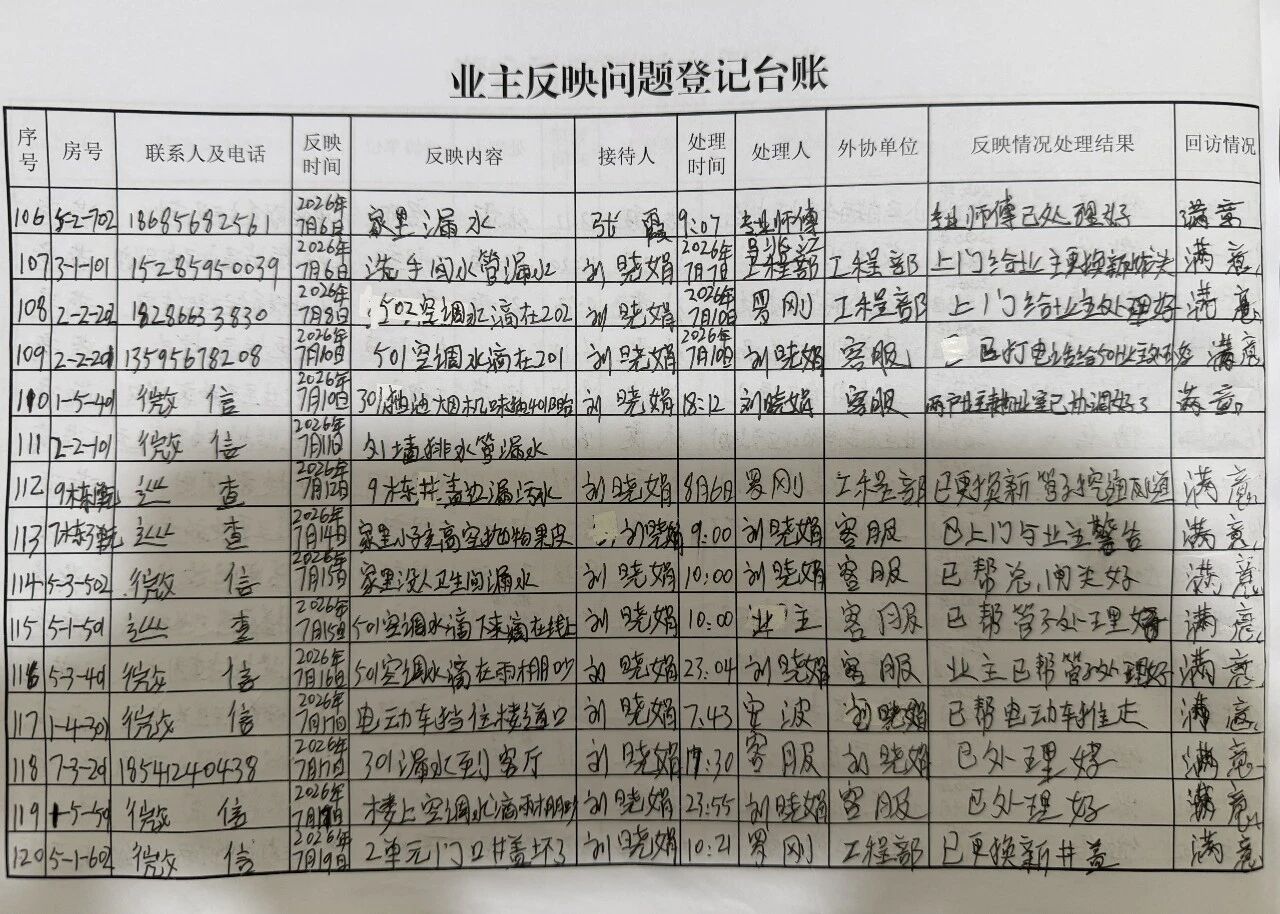 业主反映问题登记台账
序号 房号 联系人及电话 反映时间 反映内容 接待人 处理时间 处理人 外协单位 反映情况处理结果 回访情况
106 5-2-702 18685682561 2026年7月6日 家里漏水 张霞 9:07 专业师傅 专业师傅已处理好 满意
107 3-1-101 15285950039 2026年7月6日 洗手间水管漏水 刘晓娟 2026年7月7日 工程部 工程部 上门给业主更换新 满意
108 2-2-202 18286633830 2026年7月8日 502空调水滴在202 刘晓娟 2026年7月10日 罗刚 工程部 上门给业主处理好 满意
109 2-2-201 13595678208 2026年7月10日 501空调水滴在201 刘晓娟 2026年7月10日 刘晓娟 客服 已打电话给501业主 满意
110 1-5-401 微信 2026年7月10日 301抽油烟机味 刘晓娟 18:12 刘晓娟 客服 已协调好了 满意
111 2-2-101 微信 2026年7月11日 外墙排水管漏水
112 9栋 巡查 2026年7月12日 9栋井盖边漏污水 刘晓娟 8月6日 罗刚 工程部 已更换新管子挖通 满意
113 7栋3单元 巡查 2026年7月14日 家里小孩高空抛物果皮 刘晓娟 9:00 刘晓娟 客服 已上门与业主警告 满意
114 5-3-502 微信 2026年7月15日 家里没人卫生间漏水 刘晓娟 10:00 刘晓娟 客服 已帮总闸关好 满意
115 5-1-501 巡查 2026年7月15日 501空调水滴下来滴在线上 刘晓娟 10:00 业主 客服 已帮管子处理好 满意
116 5-3-401 微信 2026年7月16日 501空调水滴在雨棚吵 刘晓娟 23:04 刘晓娟 客服 业主已帮管子处理好 满意
117 1-4-301 微信 2026年7月17日 电动车挡住楼道口 刘晓娟 7:43 安波 刘晓娟 已帮电动车推走 满意
118 7-3-201 18541240438 2026年7月17日 301漏水到客厅 刘晓娟 17:30 客服 刘晓娟 已处理好 满意
119 1-5-501 微信 2026年7月17日 楼上空调水滴雨棚吵 刘晓娟 23:55 刘晓娟 客服 已处理好 满意
120 5-1-602 微信 2026年7月19日 2单元门口井盖坏了 刘晓娟 10:21 罗刚 工程部 已更换新井盖 满意